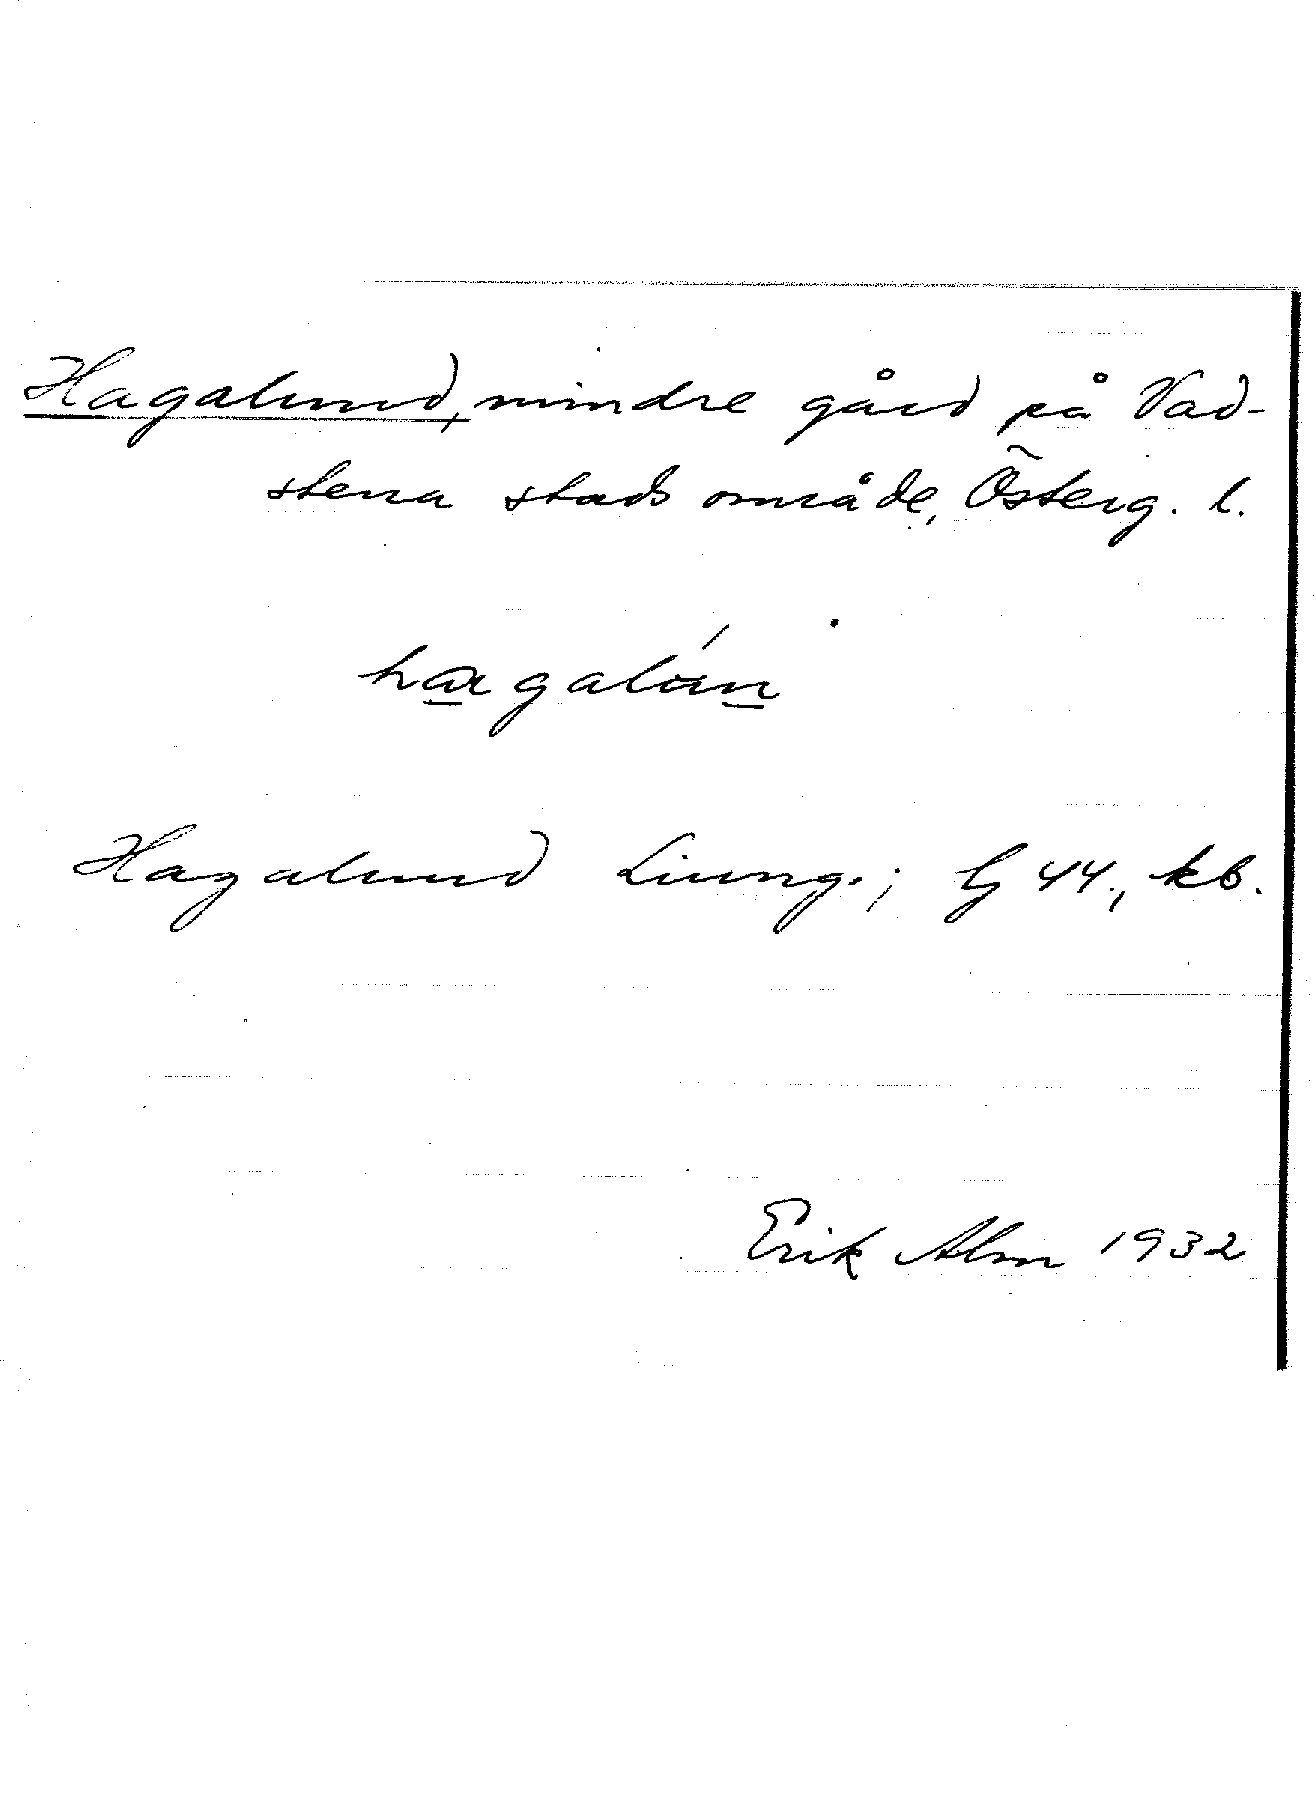 Hagalund, mindre gård på Vad-
stena stads område, Österg. l.
hagalún
Hagalund Ljung.; Gj 44, kb.
Erik Alm 1932